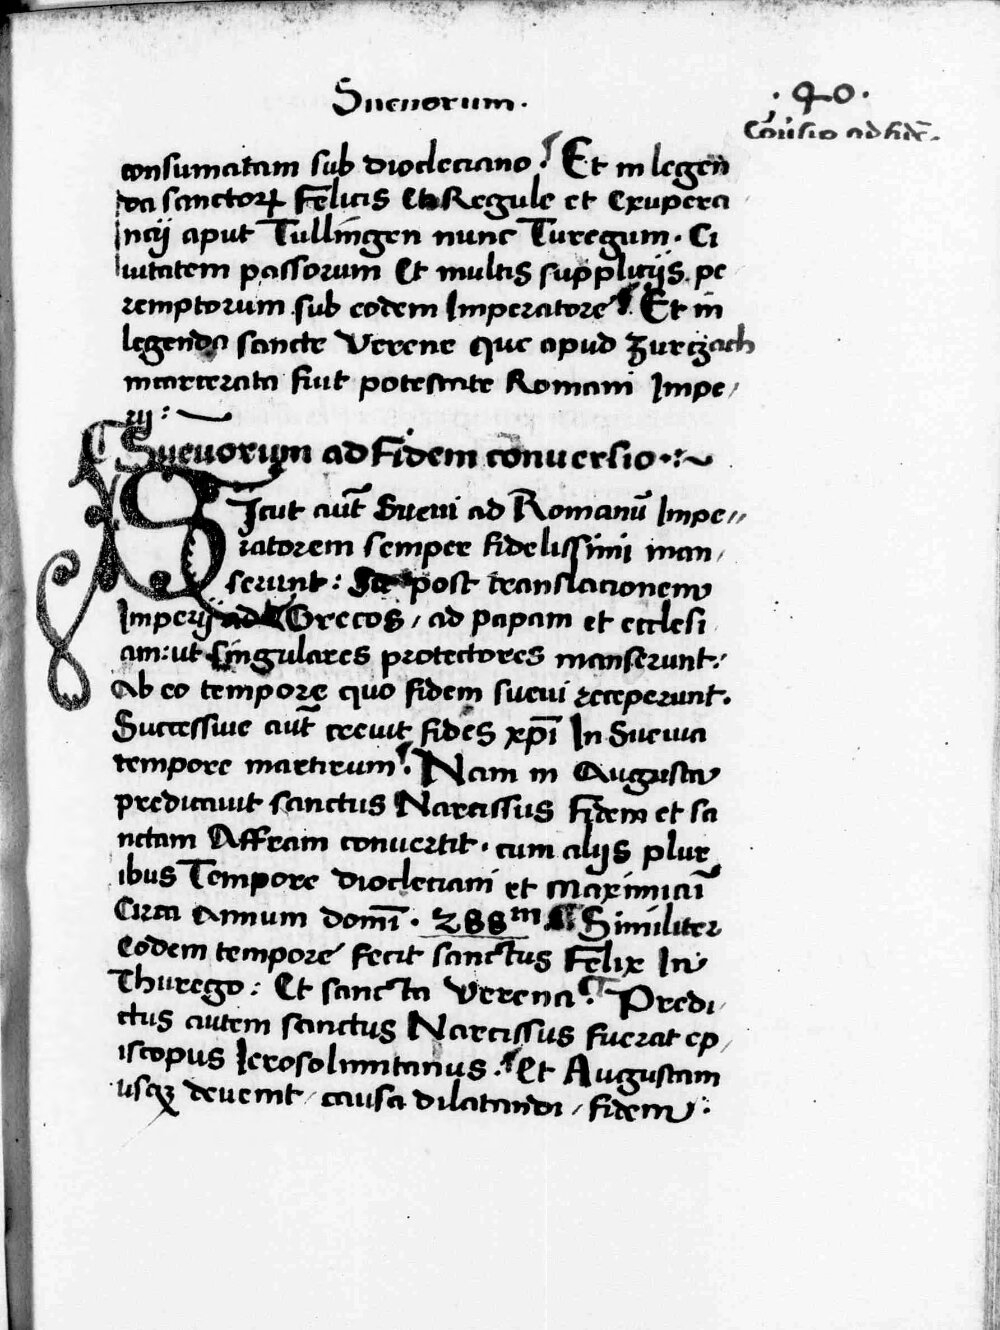 Sueuorum.
.40.
Cōūsio ad fidē.
consumatam sub diocleciano. Et in legen
da sanctoꝝ Felicis Et Regule et Exupera
ncij aput Tullingen nunc Turegum. Ci
uitatem passorum Et multis supplicijs pe
remptorum sub eodem Imperatore. Et in
legenda sancte Verene que apud Zurczach
marterata fiut potestate Romani Impe/
rij:
Sueuorum ad Fidem conuersio.:~
Sicut aūt Sueui ad Romanū Impe//
ratorem semper fidelissimi man/
serunt: Sic post translacionem
Imperij ad Grecos / ad papam et ecclesi
am: ut singulares protectores manserunt:
Ab eo tempore quo fidem sueui receperunt.
Successiue aūt creuit fides xp̄i In Sueuia
tempore martirum. Nam in Augusta
predicauit sanctus Narcissus Fidem et sa
nctam Affram conuertit. cum alijs plur
ibus Tempore diocleciani et maximiaī
Circa Annum domī. 288m Similiter
Eodem tempore fecit sanctus Felix In
Thurego: Et sancta Verena. Predi/
ctus autem sanctus Narcissus fuerat ep/
iscopus Ierosolimitanus. Et Augustam
usqꝫ deuenit / causa dilatandi / fidem.